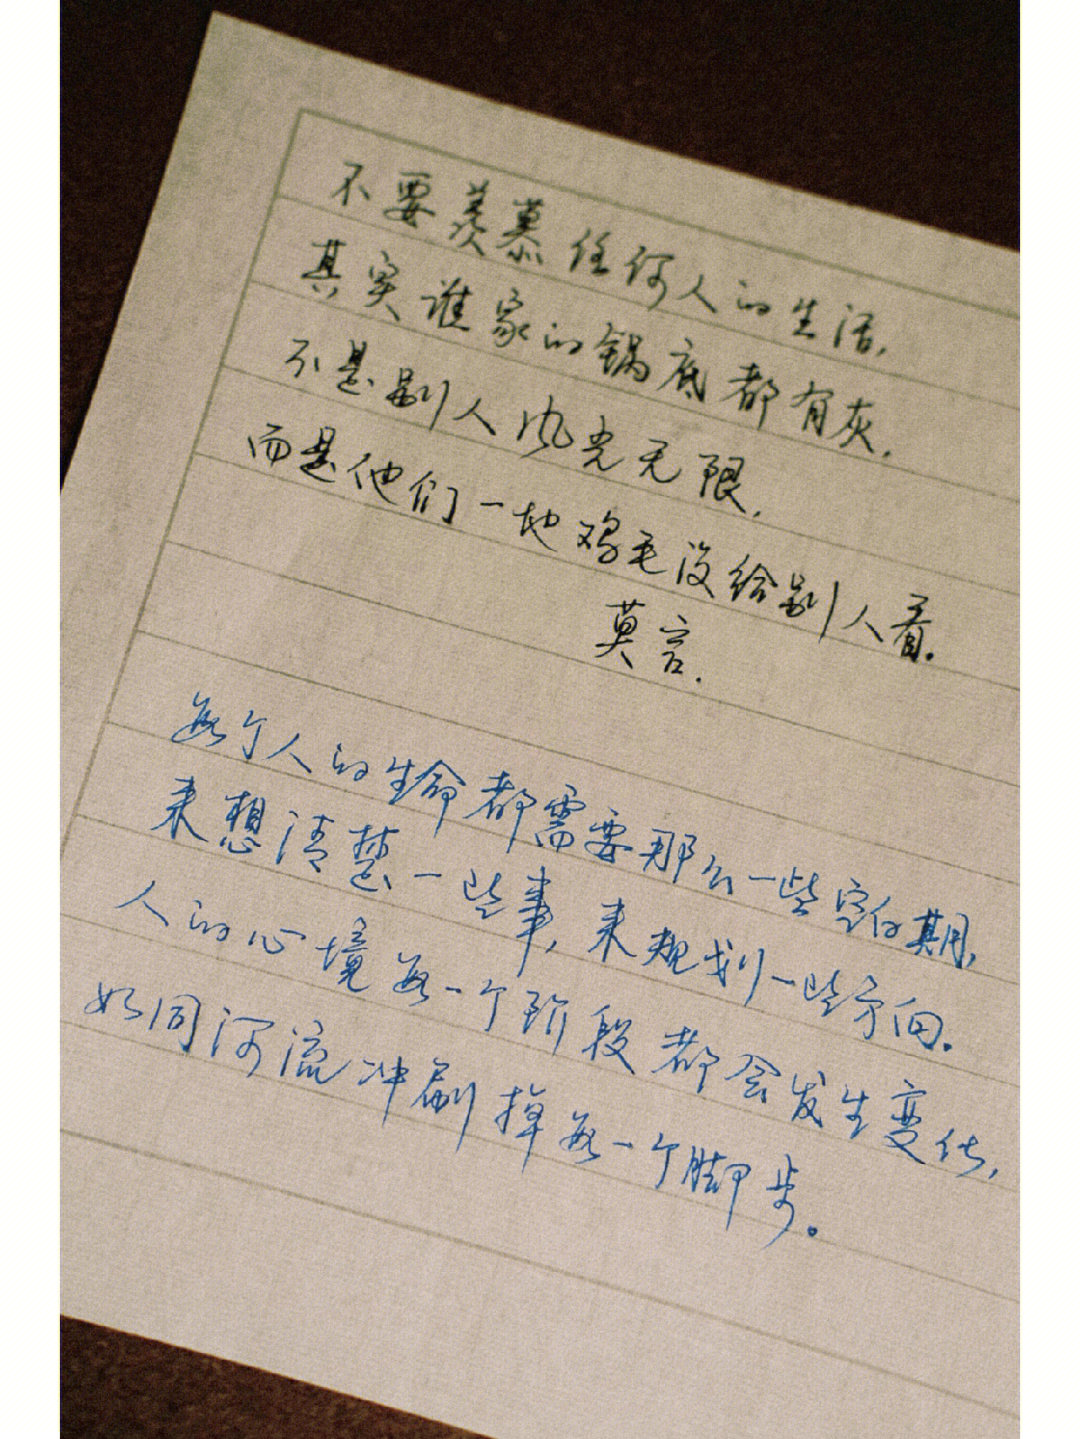 不要羡慕任何人的生活,
其实谁家的锅底都有灰,
不是别人风光无限,
而是他们一地鸡毛没给别人看。
莫言.
每个人的生命都需要那么一些空白期,
来想清楚一些事,来规划一些方向。
人的心境每一个阶段都会发生变化,
如同河流冲刷掉每一个脚步。